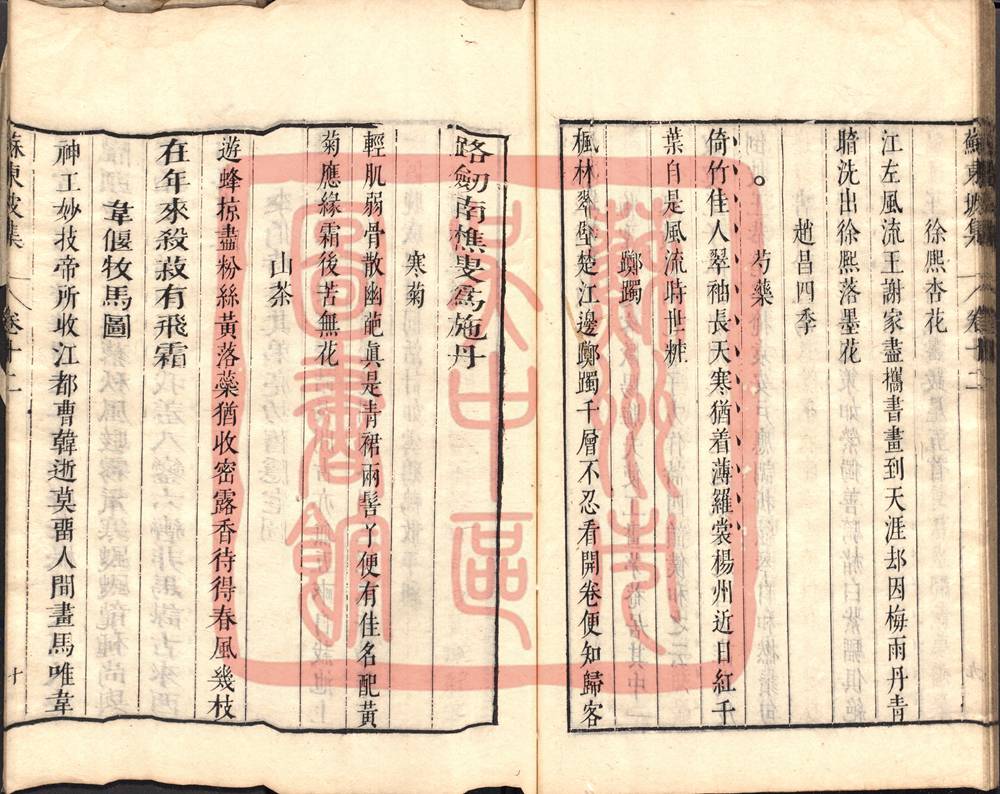 蘇東坡集 卷十二
徐熙杏花
江左風流王謝家盡攜書畫到天涯却因梅雨丹青
暗洗出徐熙落墨花
趙昌四季
芍藥
倚竹佳人翠袖長天寒猶着薄羅裳楊州近日紅千
葉自是風流時世粧
躑躅
楓林翠壁楚江邊躑躅千層不忍看開卷便知歸客
路劒南樵叟爲施丹
寒菊
輕肌弱骨散幽葩眞是青裙兩髻丫便有佳名配黃
菊應緣霜後苦無花
山茶
遊蜂掠盡粉絲黃落蘂猶收密露香待得春風幾枝
在年來殺菽有飛霜
韋偃牧馬圖
神工妙技帝所收江都曹韓逝莫畱人間畫馬唯韋
蘇東坡集 卷十二 十
蘇州市
吳中區
圖書館